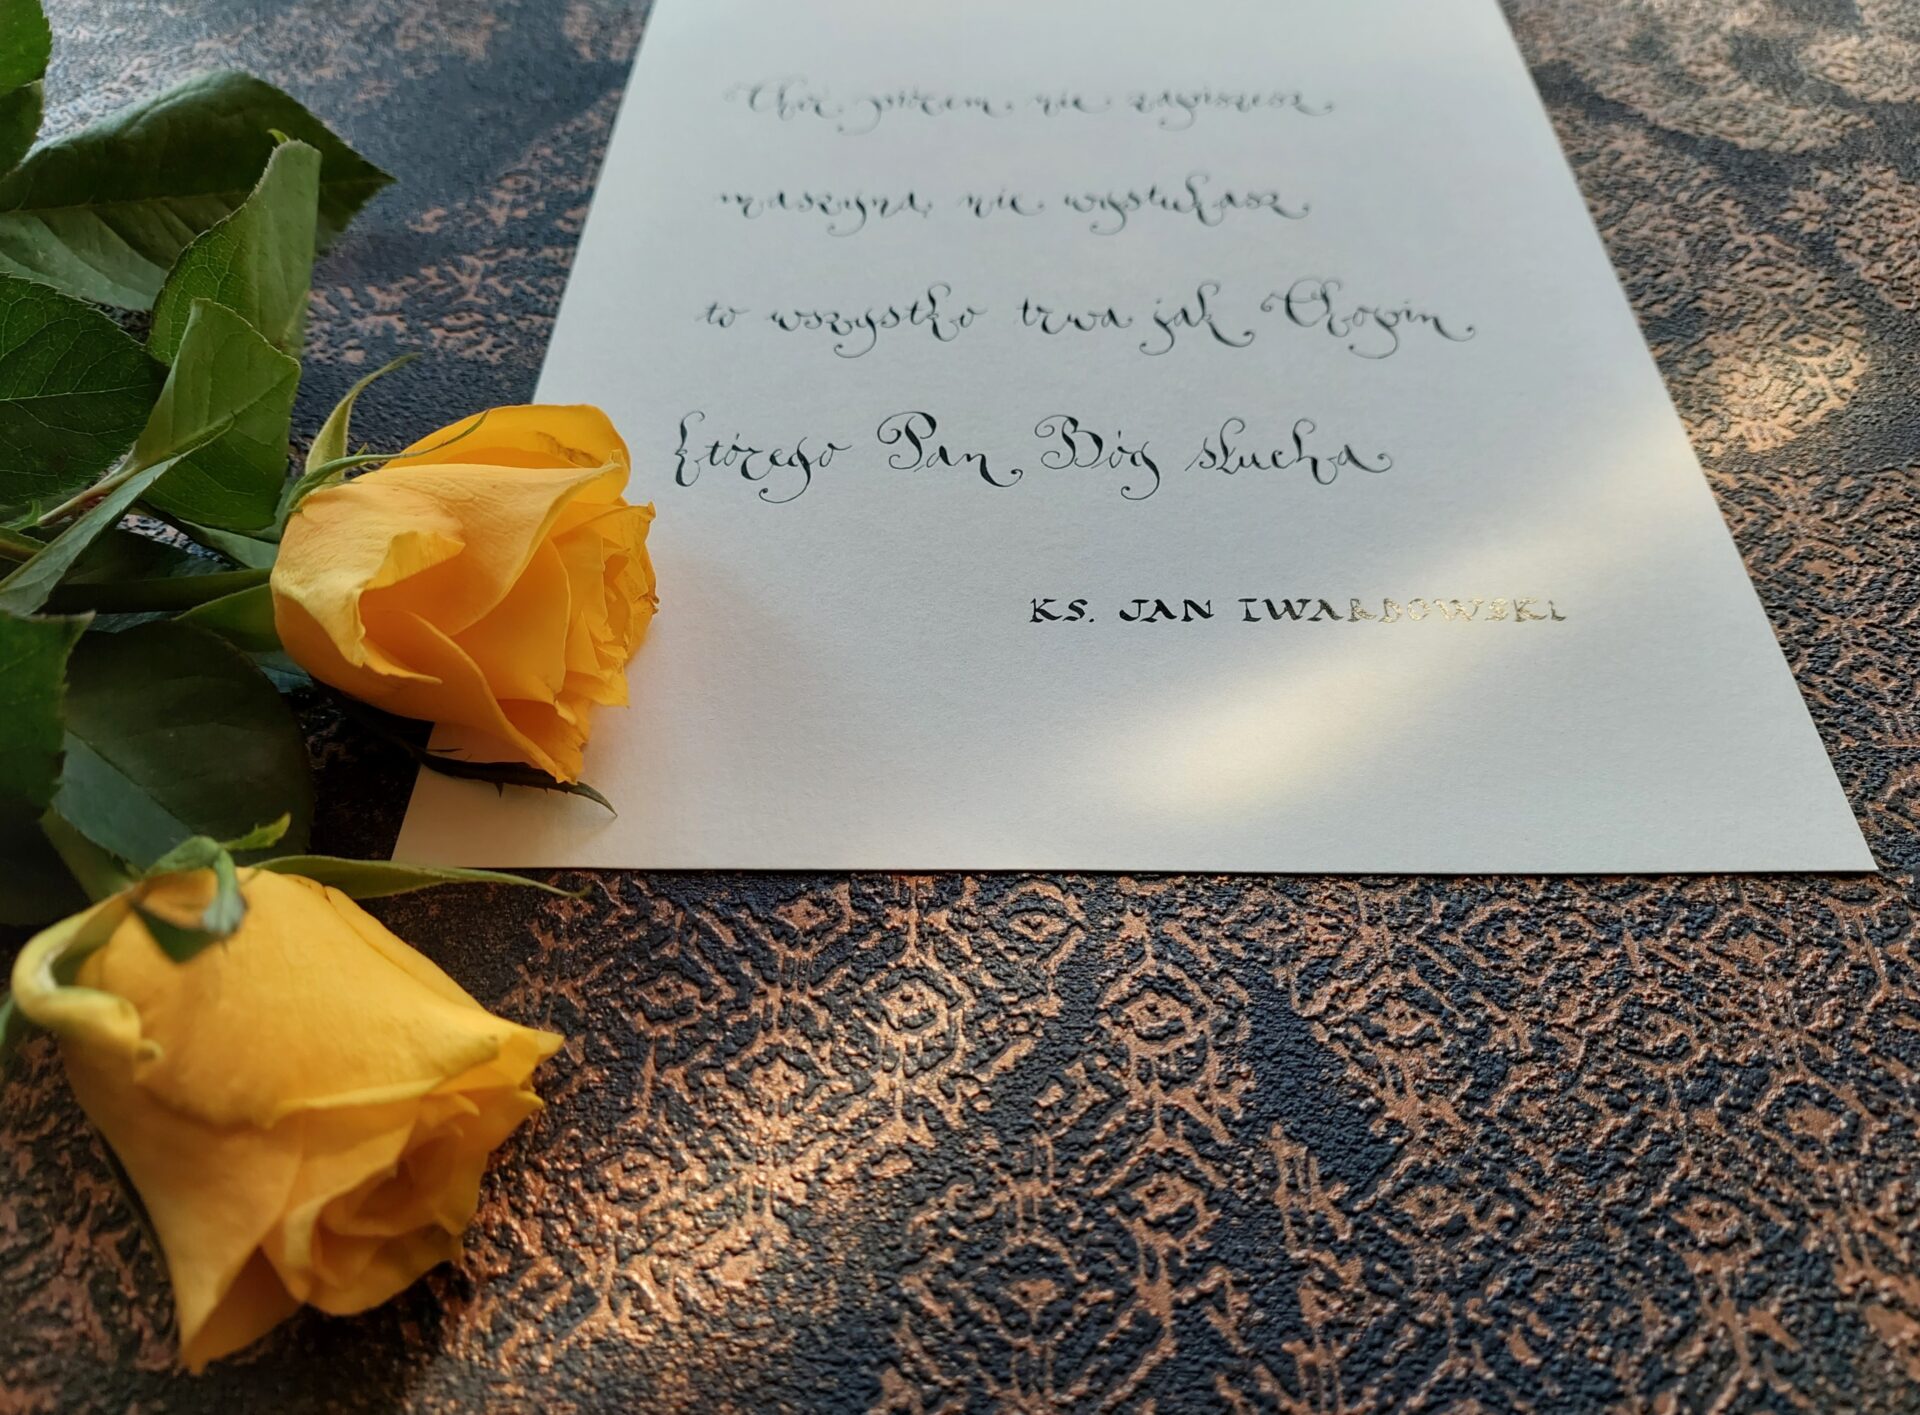 Choć piórem nie zapiszesz
maszyną nie wystukasz
to wszystko trwa jak Chopin
którego Pan Bóg słucha
KS. JAN TWARDOWSKI